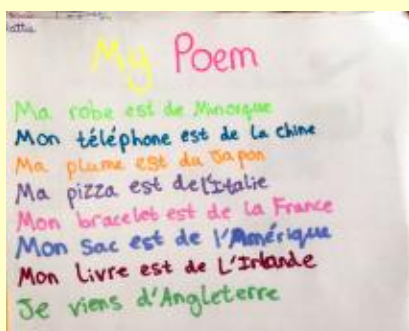 My Poem
Ma robe est de Minorque
Mon téléphone est de la Chine
Ma plume est du Japon
Ma pizza est de l'Italie
Mon bracelet est de la France
Mon Sac est de l'Amérique
Mon livre est de L'Irlande
Je viens d'Angleterre